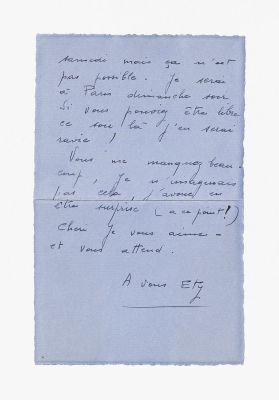 samedi mais ça n'est
pas possible. Je serai
à Paris dimanche soir
Si vous pouviez être libre
ce soir là j'en serai
ravie !
Vous me manquez beau-
coup, Je n'imaginais
pas cela, j'avoue en
être surprise (à ce point !)
Cheri je vous aime -
et vous attend.
A vous Ety